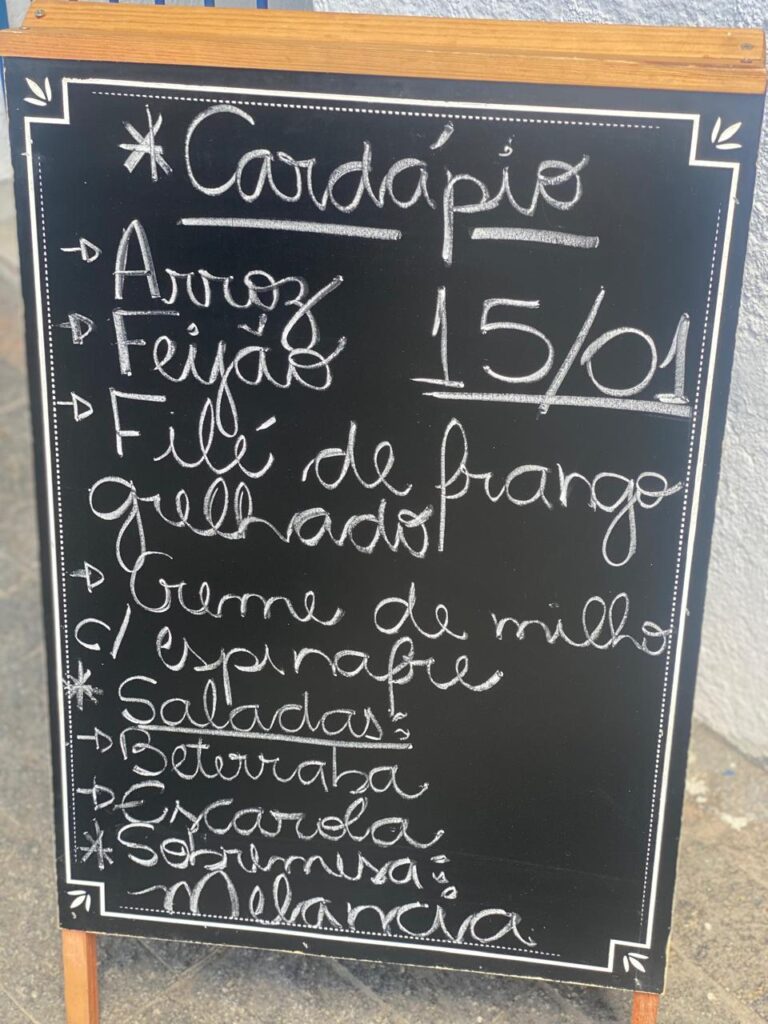 * Cardápio
→ Arroz
→ Feijão
15/01
→ Filé de frango
grelhado
→ Creme de milho
c/ espinafre
* Saladas:
→ Beterraba
→ Escarola
* Sobremesa:
Melancia